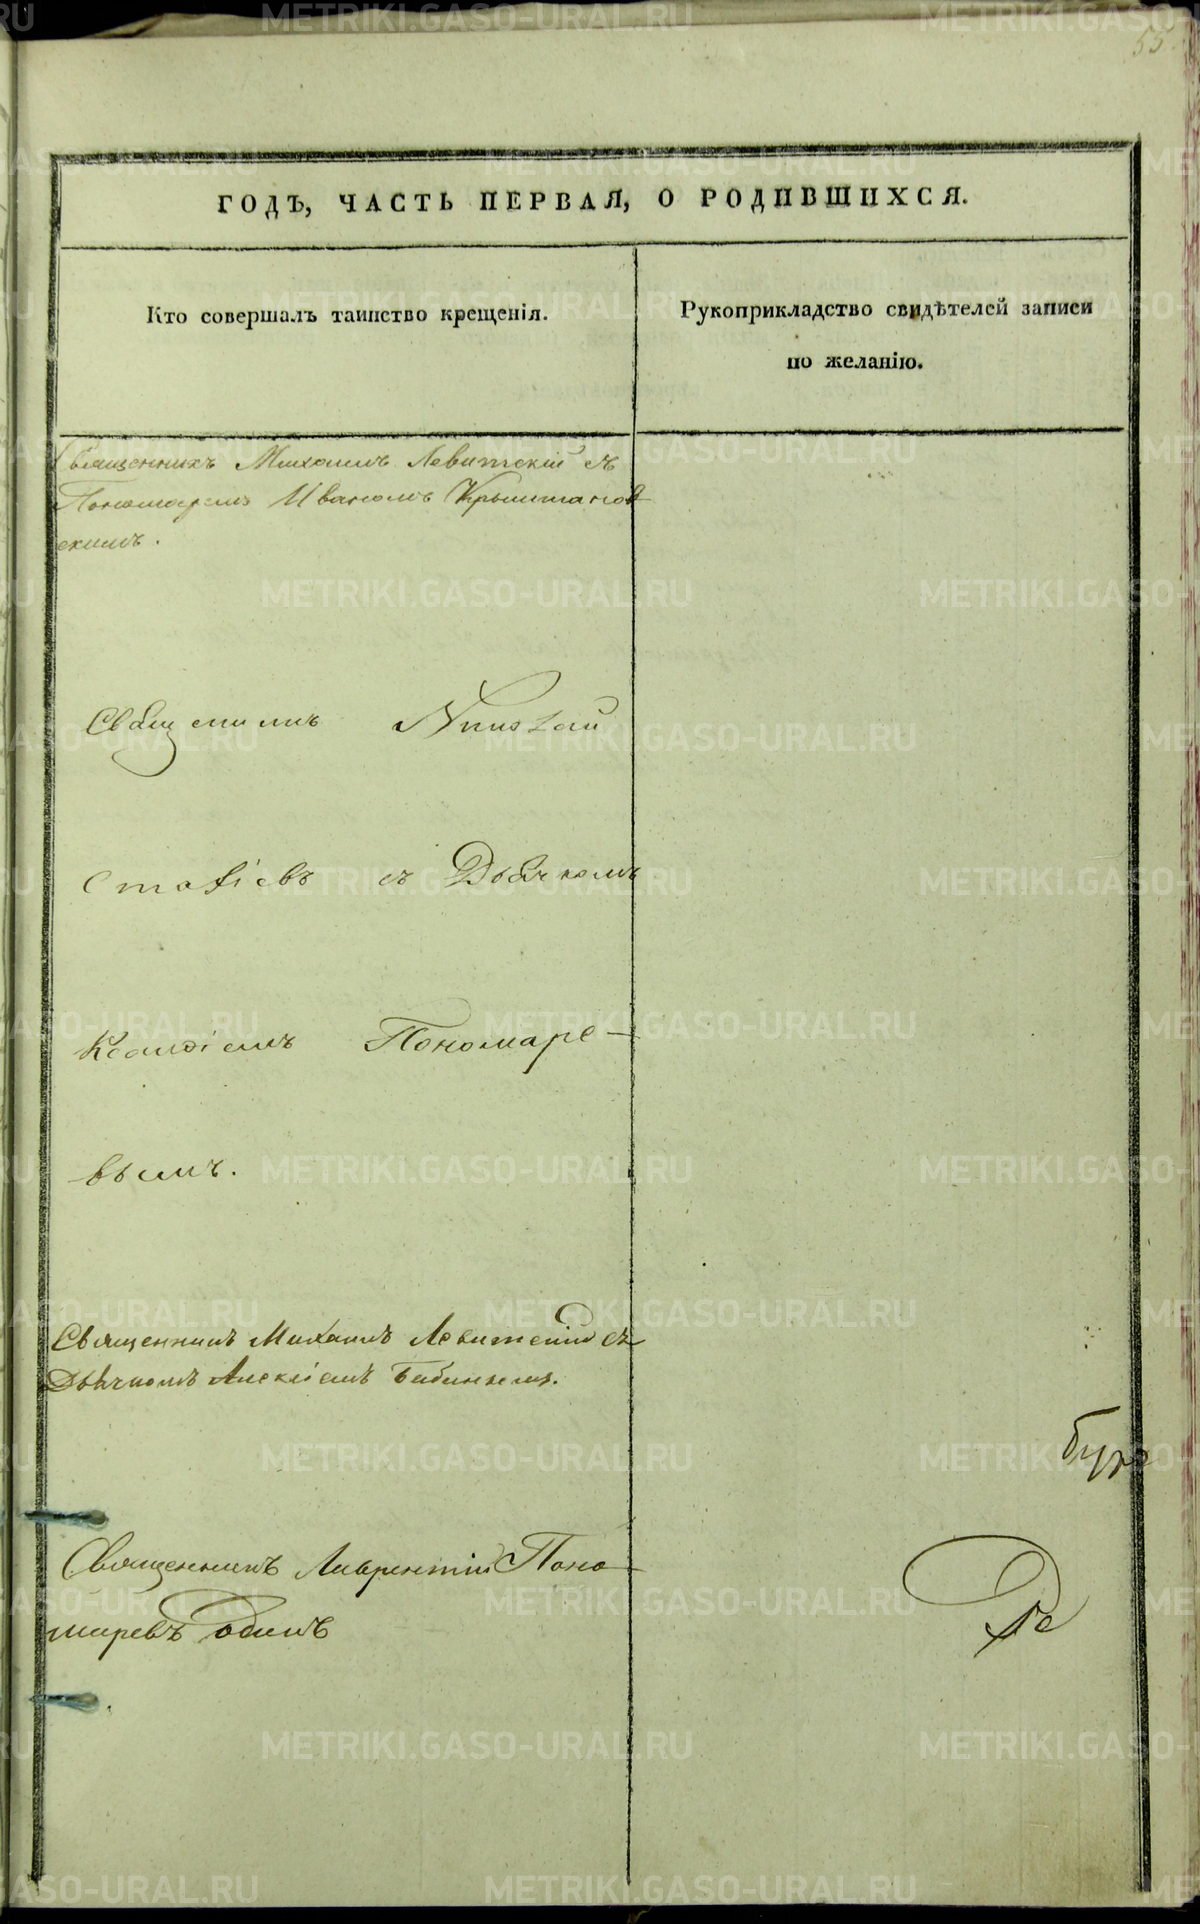 55.
ГОДЪ, ЧАСТЬ ПЕРВАЯ, О РОДИВШИХСЯ.
Кто совершалъ таинство крещенія.
Рукоприкладство свидѣтелей записи
по желанію.
Священникъ Михаилъ Левитскій съ
Пономаремъ Иваномъ Крыштанов
скимъ.
Священникъ Николай
Стафіевъ съ Дьячкомъ
Ксанфіемъ Пономаре-
вымъ.
Священникъ Михаилъ Левитскій съ
Дьячкомъ Алексіемъ Бабинымъ.
Священникъ Лаврентій Поно-
маревъ один
METRIKI.GASO-URAL.RU